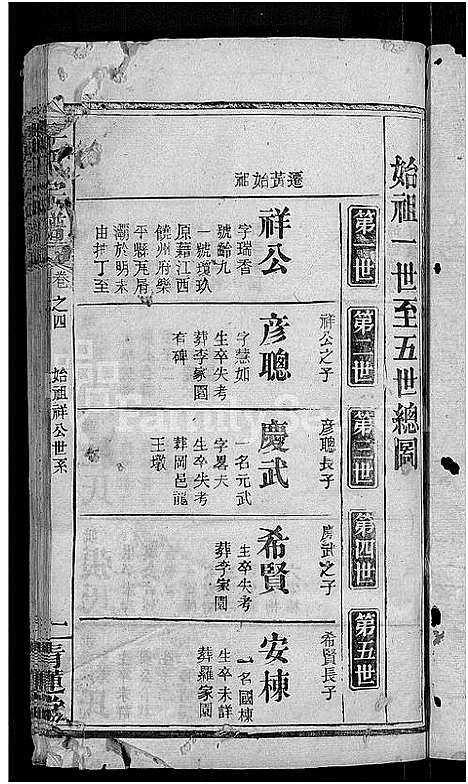 始祖一世至五世總圖
第一世
遷黃始祖
祥公
字瑞香
號齡九
一號瓊玖
原籍江西
饒州府樂
平縣
灞於明末
由
丁至
第二世
祥公之子
彥聰
字慧如
生卒失考
葬李家園
有碑
第三世
彥聰長子
慶武
一名元武
字暑夫
生卒失考
葬岡邑龍
王墩
第四世
慶武之子
希賢
生卒失考
葬李家園
第五世
希賢長子
安棟
一名國棟
生卒未詳
葬羅家園
卷之四
始祖祥公世系
青蓮堂